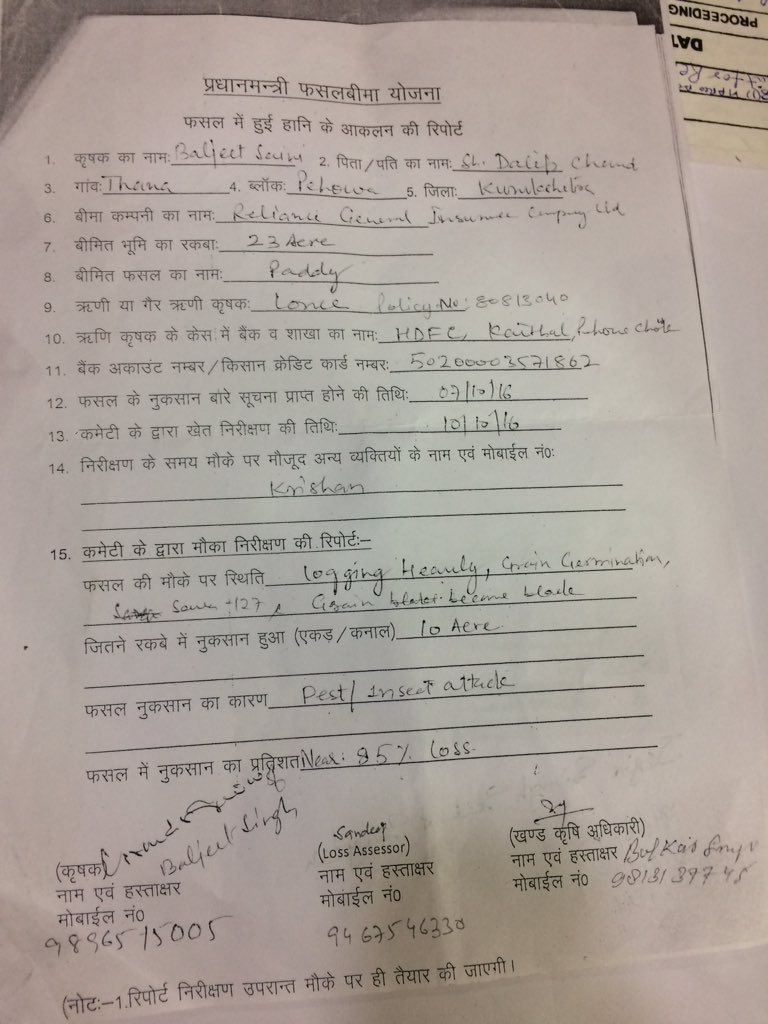 PROCEEDING
DAT
प्रधानमन्त्री फसलबीमा योजना
फसल में हुई हानि के आकलन की रिपोर्ट
1. कृषक का नाम: Baljeet Saini 2. पिता/पति का नाम: Sh. Dalip Chand
3. गांव: Thana 4. ब्लॉक: Pehowa 5. जिला: Kurukshetra
6. बीमा कम्पनी का नाम: Reliance General Insurance Company Ltd
7. बीमित भूमि का रकबा: 23 Acre
8. बीमित फसल का नाम: Paddy
9. ऋणी या गैर ऋणी कृषक: Lonee Policy No: 80813040
10. ऋणि कृषक के केस में बैंक व शाखा का नाम: HDFC, Kaithal,
11. बैंक अकाउंट नम्बर/किसान क्रेडिट कार्ड नम्बर: 50200003571862
12. फसल के नुकसान बारे सूचना प्राप्त होने की तिथि: 07/10/16
13. कमेटी के द्वारा खेत निरीक्षण की तिथि: 10/10/16
14. निरीक्षण के समय मौके पर मौजूद अन्य व्यक्तियों के नाम एवं मोबाईल नं०:
Krishan
15. कमेटी के द्वारा मौका निरीक्षण की रिपोर्ट:–
फसल की मौके पर स्थिति logging Heavly, Grain Germination,
127, Grain become
जितने रकबे में नुकसान हुआ (एकड़/कनाल) 10 Acre
फसल नुकसान का कारण Pest/Insect attack
फसल में नुकसान का प्रतिशत Near: 85% loss.
Baljeet Singh
Sandeep
(कृषक) (Loss Assessor) (खण्ड कृषि अधिकारी)
नाम एवं हस्ताक्षर नाम एवं हस्ताक्षर नाम एवं हस्ताक्षर
मोबाईल नं0 मोबाईल नं0 मोबाईल नं0
9896515005 9467546330
(नोट:–1.रिपोर्ट निरीक्षण उपरान्त मौके पर ही तैयार की जाएगी।